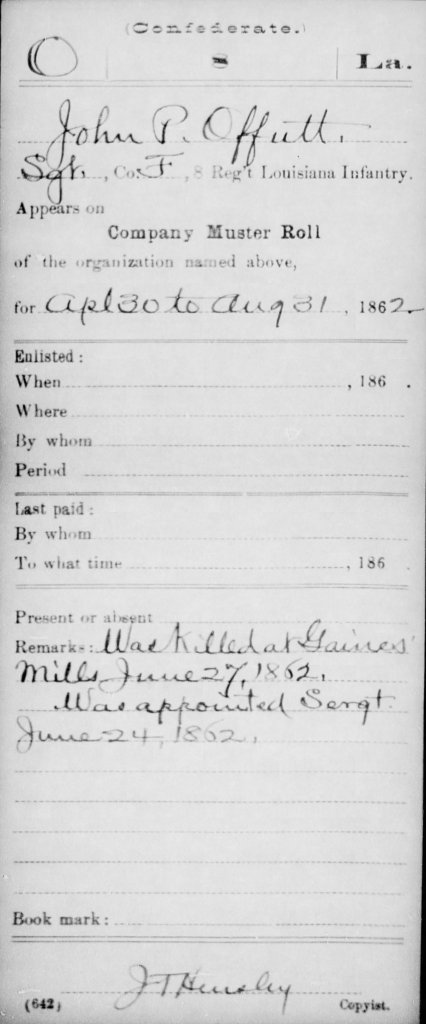 (Confederate.)
O 8 La.
John P. Offutt.
Sgt., Co. F, 8 Reg't Louisiana Infantry.
Appears on
Company Muster Roll
of the organization named above,
for Apl 30 to Aug 31, 1862.
Enlisted:
When , 186 .
Where
By whom
Period
Last paid:
By whom
To what time , 186 .
Present or absent
Remarks: Was Killed at Gaines'
Mills June 27, 1862.
Was appointed Sergt.
June 24, 1862.
Book mark:
J T Hensley
(642) Copyist.